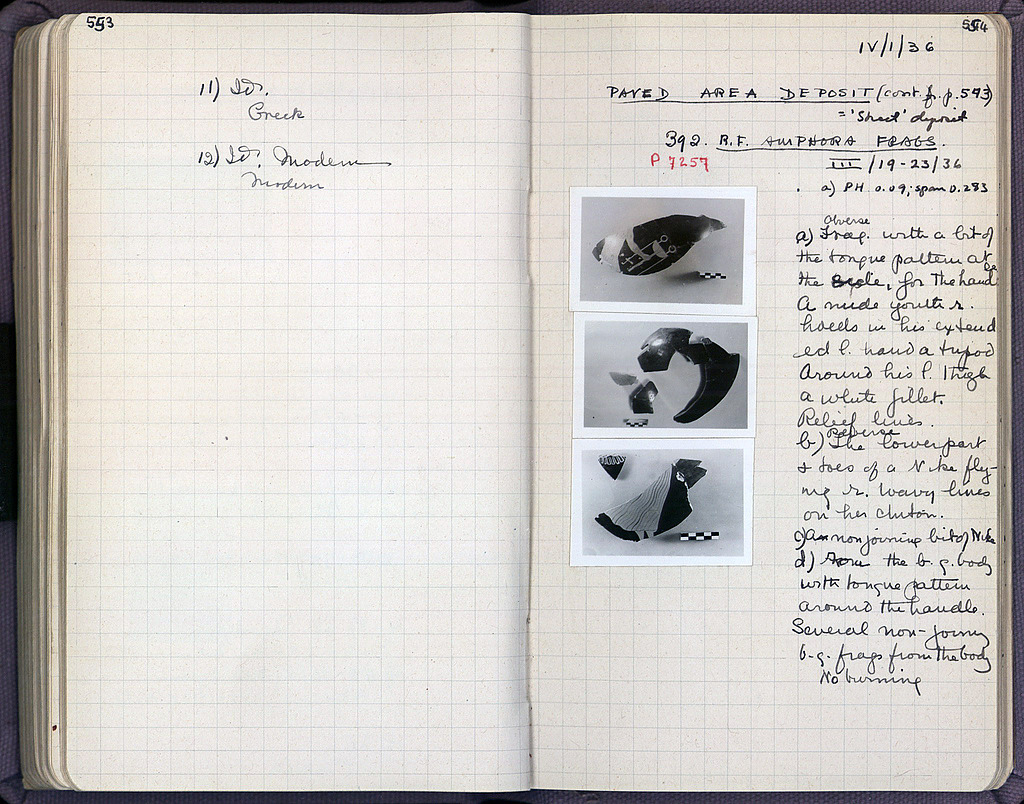 553
11) Id.
Greek
12) Id. Modern
Modern
554
IV/1/36
PAVED AREA DEPOSIT (cont. f. p. 543)
= 'Street' deposit
392. R.F. AMPHORA FRAGS.
P 7257
III/19-23/36
a) PH. 0.09; span 0.283
obverse
a) Frag. with a bit of
the tongue pattern at
the side, for the hand
A nude youth r.
holds in his extend
ed l. hand a tripod
Around his l. thigh
a white fillet.
Relief lines.
Reverse
b) The lower part
& toes of a Nike fly-
ing r. Wavy lines
on her chiton.
c) A non joining bit of Nike
d) From the b.g. body
with tongue pattern
around the handle.
Several non-joining
b.g. frags from the body
No burning